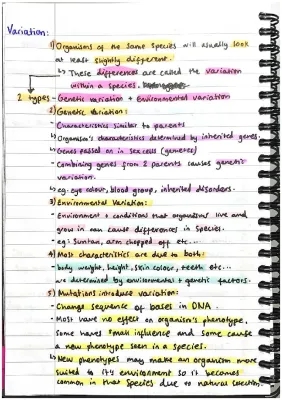 Variation:
1) Organisms of the same species will usually look
at least slightly different.
↳ These differences are called the variation
within a species.
2 types - Genetic variation + Environmental variation
2) Genetic Variation:
- Characteristics similar to parents
↳ Organism's characteristics determined by inherited genes.
↳ Genes passed on in sex cells (gametes)
- Combining genes from 2 parents causes genetic
variation.
↳ eg. eye colour, blood group, inherited disorders.
3) Environmental Variation:
- Environment + conditions that organisms live and
grow in can cause differences in species.
- eg: Suntan, arm chopped off etc...
4) Most characteristics are due to both:
- body weight, height, skin colour, teeth etc...
determined by environmental + genetic factors.
5) Mutations introduce variation:
- Change sequence of bases in DNA.
- Most have no effect on organism's phenotype,
Some have small influence and some cause
a new phenotype seen in a species.
↳ New phenotypes may make an organism more
suited to it's environment so it becomes
common in that species due to natural selection.